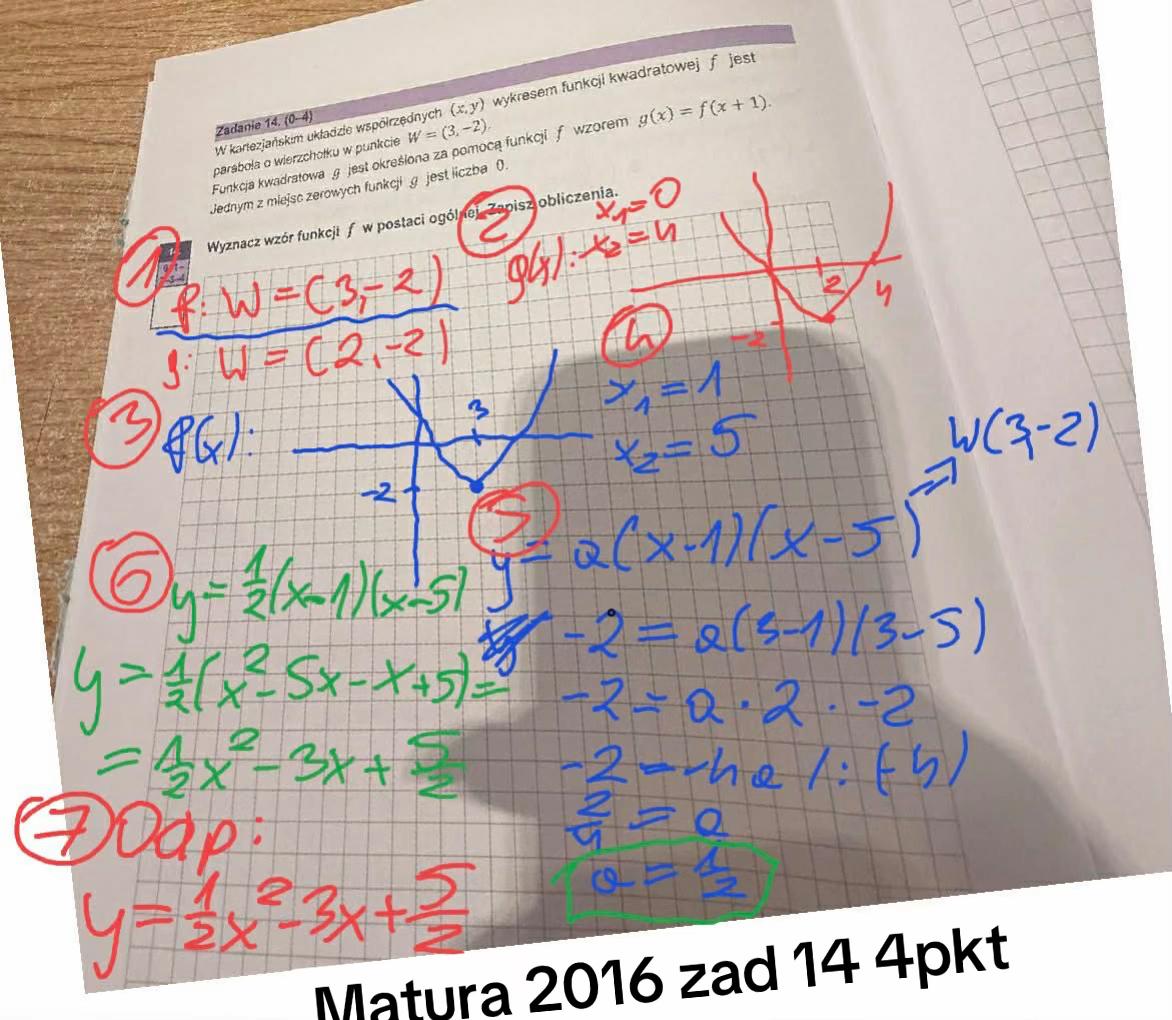 Zadanie 14. (0–4)
W kartezjańskim układzie współrzędnych (x, y) wykresem funkcji kwadratowej f jest
parabola o wierzchołku w punkcie W = (3, −2).
Funkcja kwadratowa g jest określona za pomocą funkcji f wzorem g(x) = f(x + 1).
Jednym z miejsc zerowych funkcji g jest liczba 0.
Wyznacz wzór funkcji f w postaci ogólnej. Zapisz obliczenia.
1
f: W = (3,-2)
g: W = (2,-2)
2
g(x): x₁=0
x₂=4
2
4
-2
3
f(x):
3
-2
4
x₁ = 1
x₂ = 5
5
y = a(x-1)(x-5) ⇒ W(3,-2)
-2 = a(3-1)(3-5)
-2 = a · 2 · -2
-2 = -4a /: (-4)
2/4 = a
a = 1/2
6
y = 1/2(x-1)(x-5)
y = 1/2(x²-5x-x+5) =
= 1/2x² - 3x + 5/2
7 Odp:
y = 1/2x² - 3x + 5/2
Matura 2016 zad 14 4pkt